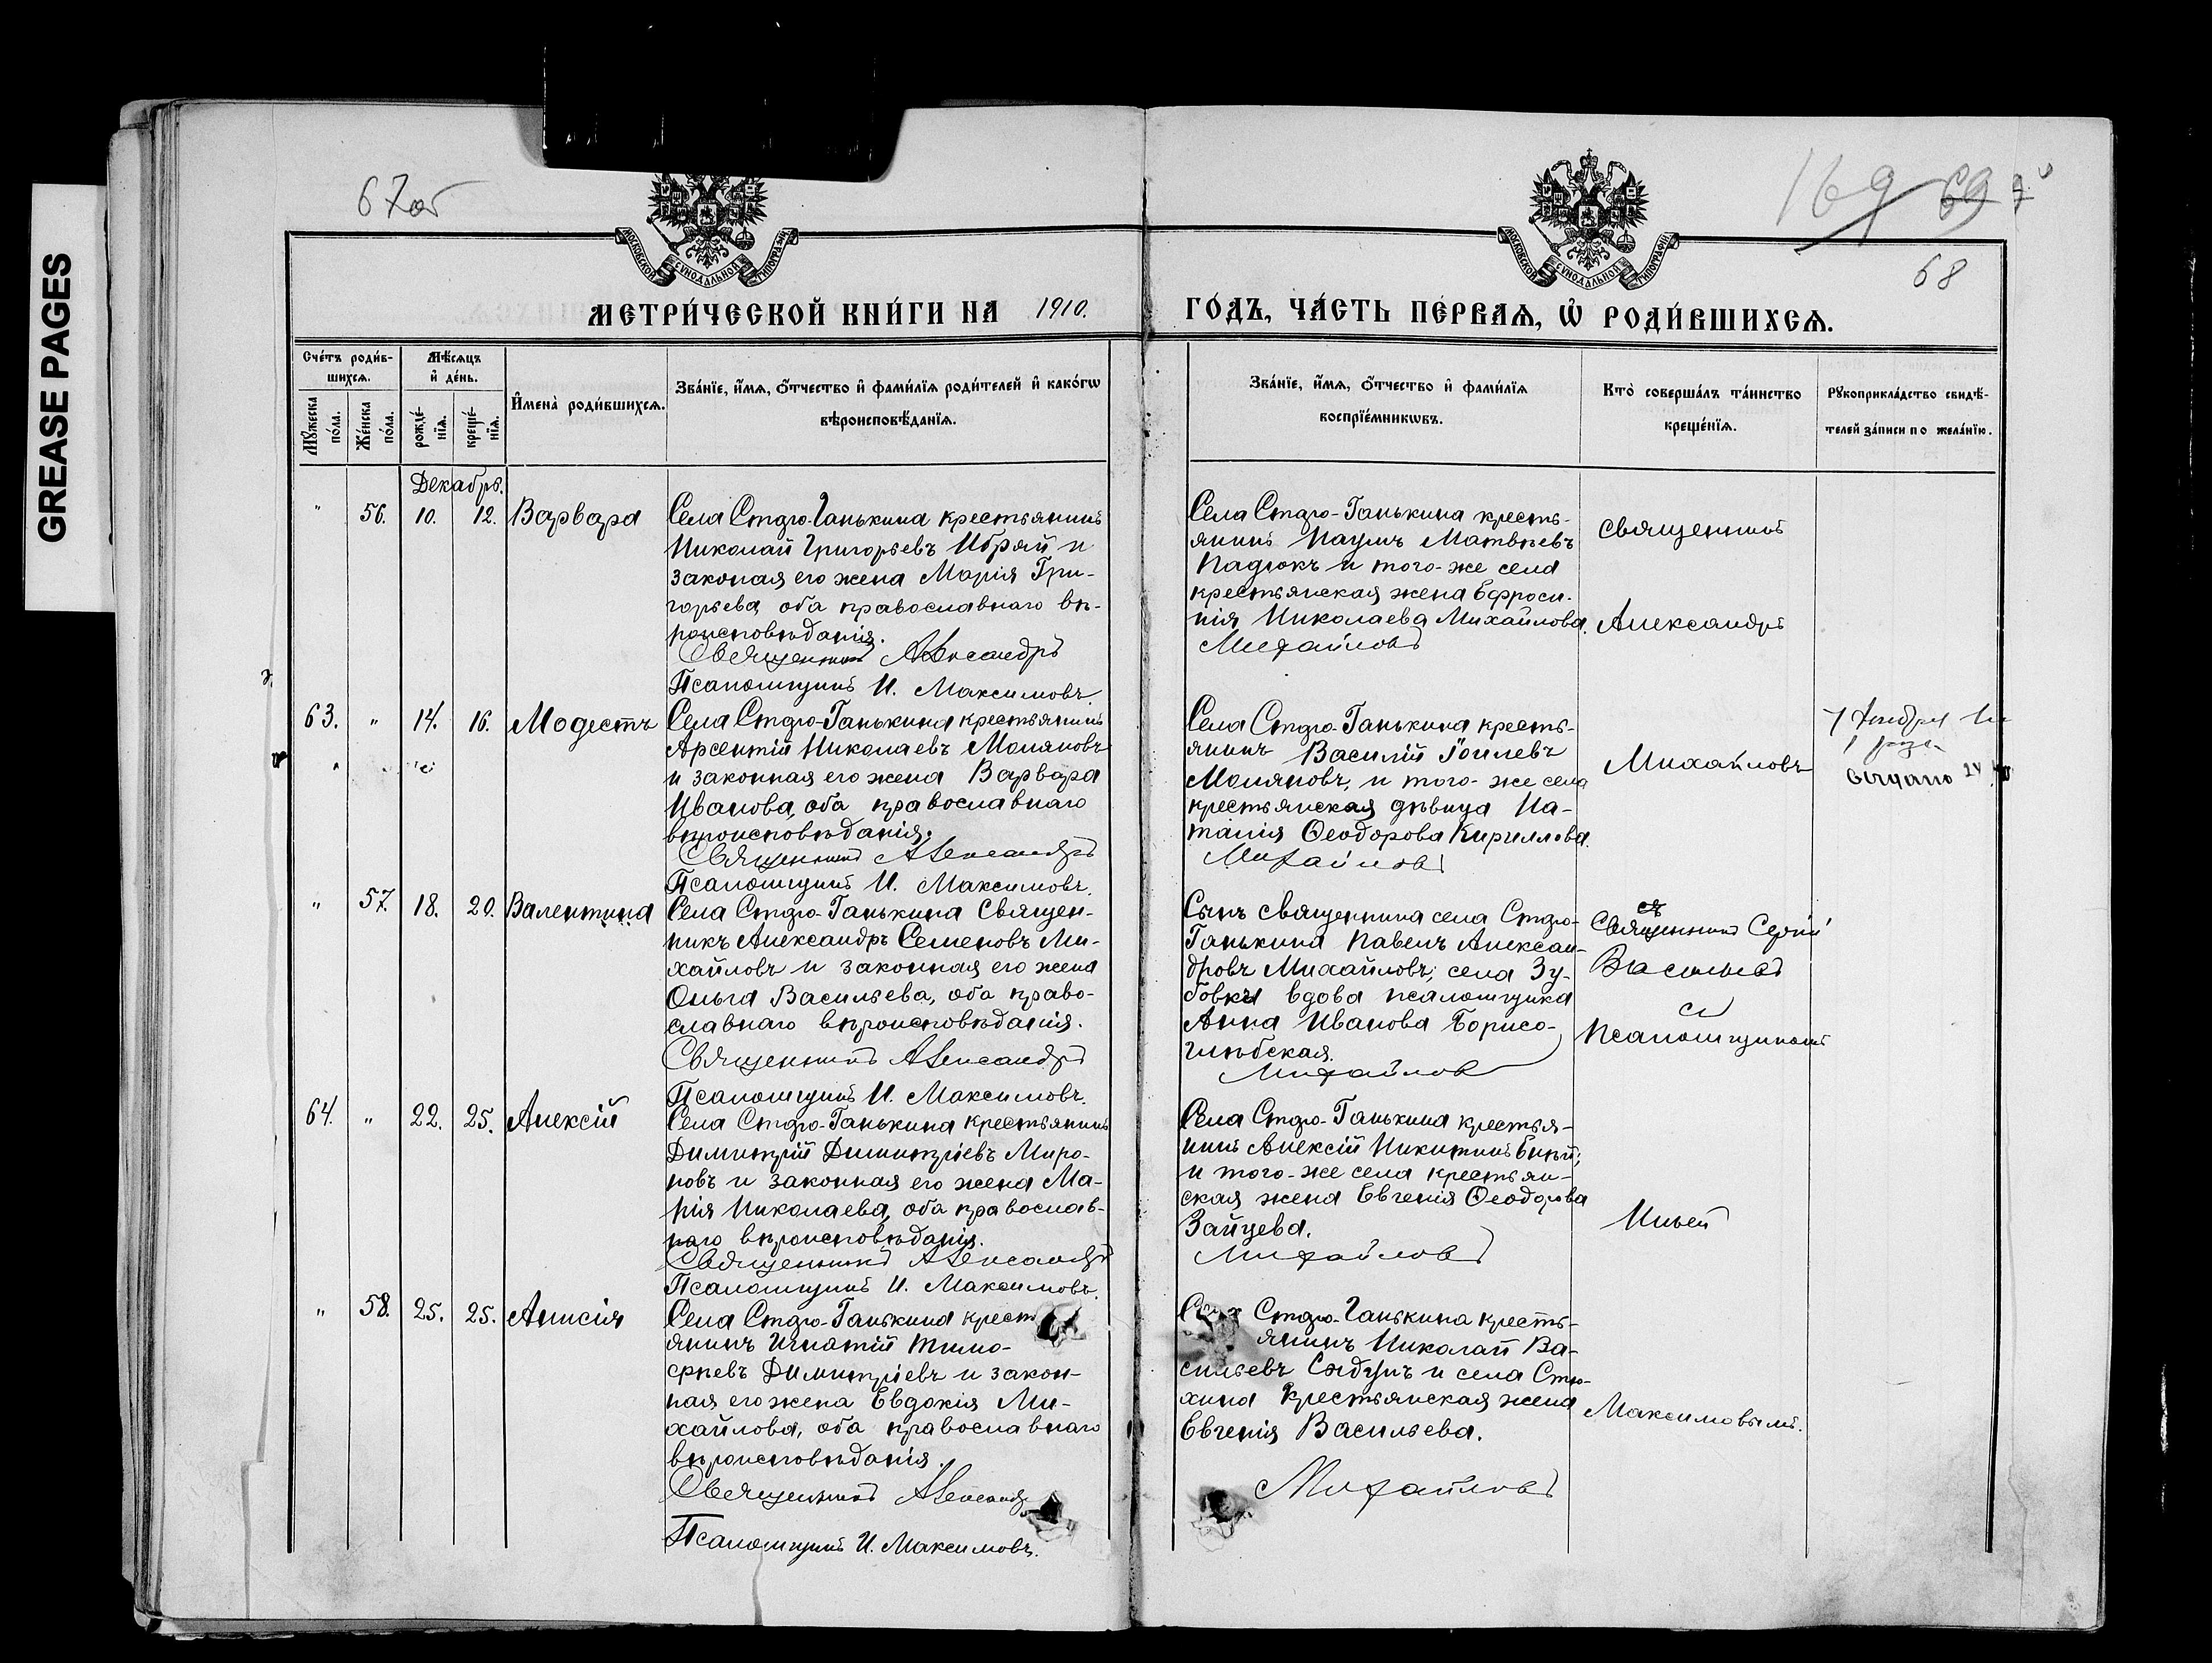 GREASE PAGES
67об
169 69
68
МОСКОВСКОЙ СѴНОДАЛЬНОЙ ТИПОГРАФІИ
МОСКОВСКОЙ СѴНОДАЛЬНОЙ ТИПОГРАФІИ
МЕТРИ́ЧЕСКОЙ КНИ́ГИ НА 1910. ГО́ДЪ, ЧА́СТЬ ПЕ́РВАѦ, Ѡ҆ РОДИ́ВШИХСѦ.
Сче́тъ роди́в-
шихсѧ.
Мѣ́сѧцъ
и҆ де́нь.
Мꙋ́жеска
по́ла.
Же́нска
по́ла.
рожде́-
нїѧ.
креще́-
нїѧ.
И҆мена̀ роди́вшихсѧ.
Зва́нїе, и҆́мѧ, ѻ҆́тчество и҆ фами́лїѧ роди́телей и҆ како́гѡ
вѣроисповѣ́данїѧ.
Зва́нїе, и҆́мѧ, ѻ҆́тчество и҆ фами́лїѧ
воспрїе́мникѡвъ.
Кто̀ соверша́лъ та́инство
креще́нїѧ.
Рꙋкоприкла́дство свидѣ́-
телей за́писи по жела́нїю.
Декабрь.
" 56. 10. 12. Варвара
Села Старо-Ганькина крестьянинъ
Николай Григорьевъ Ибряй и
законая его жена Марія Гри-
горьева, оба православнаго вѣ-
роисповѣданія.
Священникъ Александръ
Псаломщикъ И. Максимовъ.
Села Старо-Ганькина кресть-
янинъ Наумъ Матвѣевъ
Падюкъ и того-же села
крестьянская жена Ефроси-
нія Николаева Михайлова.
Михайловъ
священникъ
Александръ
63. " 14. 16. Модестъ
Села Старо-Ганькина крестьянинъ
Арсентій Николаевъ Моляновъ
и законная его жена Варвара
Иванова, оба православнаго
вѣроисповѣданія.
Священникъ Александръ
Псаломщикъ И. Максимовъ.
Села Старо-Ганькина кресть-
янинъ Василій Іоилевъ
Моляновъ, и того-же села
крестьянская дѣвица На-
талія Ѳеодорова Кириллова.
Михайловъ
Михайловъ
" 57. 18. 20. Валентина
Села Старо-Ганькина священ-
никъ Александръ Семеновъ Ми-
хайловъ и законная его жена
Ольга Васильева, оба право-
славнаго вѣроисповѣданія.
Священникъ Александръ
Псаломщикъ И. Максимовъ.
Сынъ священника села Старо-
Ганькина Павелъ Алексан-
дровъ Михайловъ; села Зу-
бовки вдова псаломщика
Анна Иванова Борисо-
глѣбская.
Михайловъ
Священникъ Сергій
Васильевъ
съ
Псаломщикомъ
64. " 22. 25. Алексій
Села Старо-Ганькина крестьянинъ
Димитрій Димитріевъ Миро-
новъ и законная его жена Ма-
рія Николаева, оба православ-
наго вѣроисповѣданія.
Священникъ Александръ
Псаломщикъ И. Максимовъ.
Села Старо-Ганькина крестья-
нинъ Алексій Никитинъ
и того-же села крестьян-
ская жена Евгенія Ѳеодорова
Зайцева.
Михайловъ
Ильей
" 58. 25. 25. Анисія
Села Старо-Ганькина крест
янинъ Игнатій Тимо-
ѳеевъ Димитріевъ и закон-
ная его жена Евдокія Ми-
хайлова, оба православнаго
вѣроисповѣданія.
Священникъ Александръ
Псаломщикъ И. Максимовъ.
Села Старо-Ганькина кресть-
янинъ Николай Ва-
сильевъ и села Стю-
хина крестьянская жена
Евгенія Васильева.
Михайловъ
Максимовымъ.